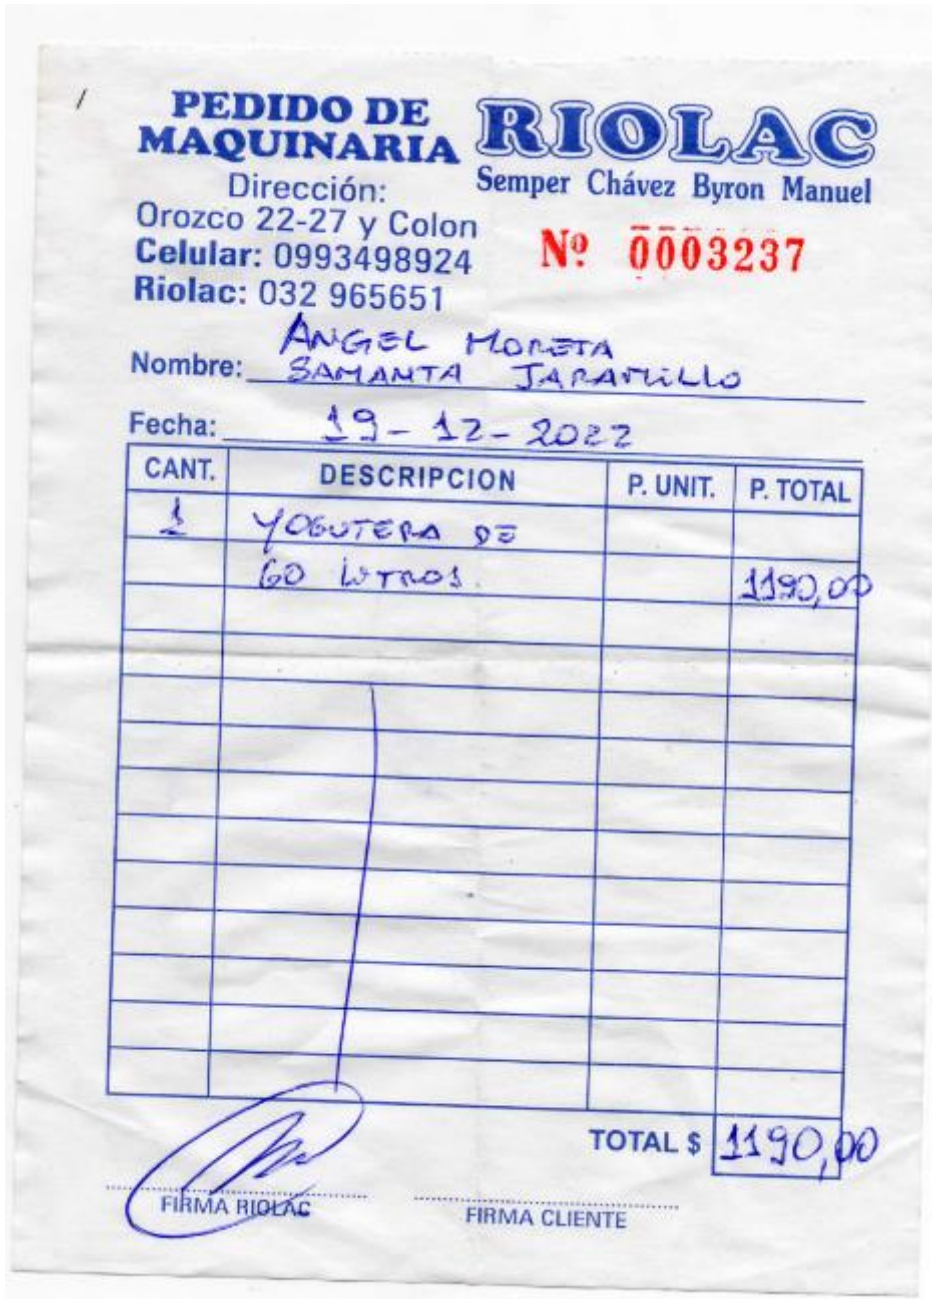 PEDIDO DE
MAQUINARIA
RIOLAC
Semper Chávez Byron Manuel
Dirección:
Orozco 22-27 y Colon
Celular: 0993498924
Riolac: 032 965651
Nº 0003237
ANGEL MORETA
Nombre: SAMANTA JARAMILLO
Fecha: 19-12-2022
CANT. DESCRIPCION P. UNIT. P. TOTAL
1 YOGUTERA DE
60 LITROS. 1190,00
TOTAL $ 1190,00
FIRMA RIOLAC
FIRMA CLIENTE